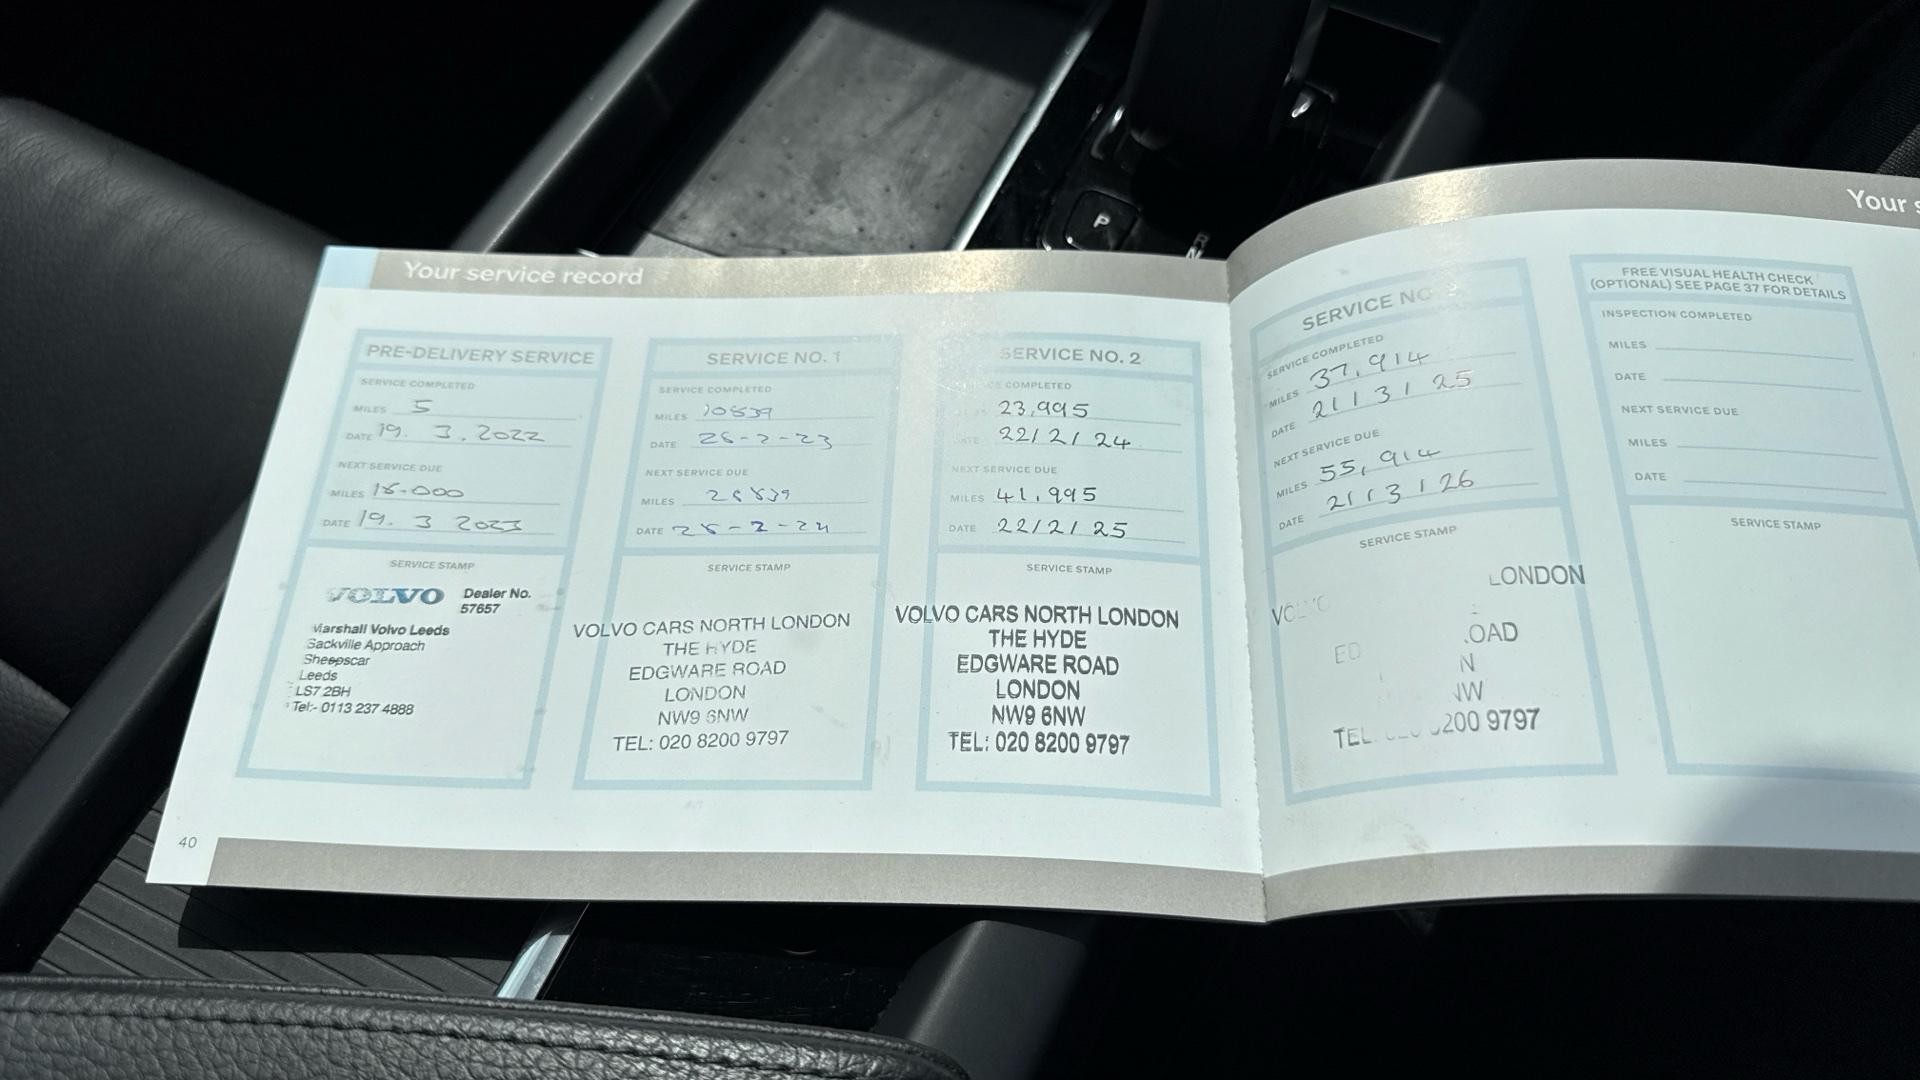 P
R
N
Your service record
PRE-DELIVERY SERVICE
SERVICE COMPLETED
MILES 5
DATE 19. 3. 2022
NEXT SERVICE DUE
MILES 18.000
DATE 19. 3 2023
SERVICE STAMP
VOLVO Dealer No.
57657
Marshall Volvo Leeds
Sackville Approach
Sheepscar
Leeds
LS7 2BH
Tel:- 0113 237 4888
40
SERVICE NO. 1
SERVICE COMPLETED
MILES 10839
DATE 28-2-23
NEXT SERVICE DUE
MILES 28839
DATE 28-2-24
SERVICE STAMP
VOLVO CARS NORTH LONDON
THE HYDE
EDGWARE ROAD
LONDON
NW9 6NW
TEL: 020 8200 9797
SERVICE NO. 2
COMPLETED
23,995
22/2/24
NEXT SERVICE DUE
MILES 41,995
DATE 22/2/25
SERVICE STAMP
VOLVO CARS NORTH LONDON
THE HYDE
EDGWARE ROAD
LONDON
NW9 6NW
TEL: 020 8200 9797
Your s
SERVICE NO
SERVICE COMPLETED
MILES 37,914
DATE 21/3/25
NEXT SERVICE DUE
MILES 55,914
DATE 21/3/26
SERVICE STAMP
LONDON
VOLVO
ED OAD
N
NW
TEL: 8200 9797
FREE VISUAL HEALTH CHECK
(OPTIONAL) SEE PAGE 37 FOR DETAILS
INSPECTION COMPLETED
MILES
DATE
NEXT SERVICE DUE
MILES
DATE
SERVICE STAMP